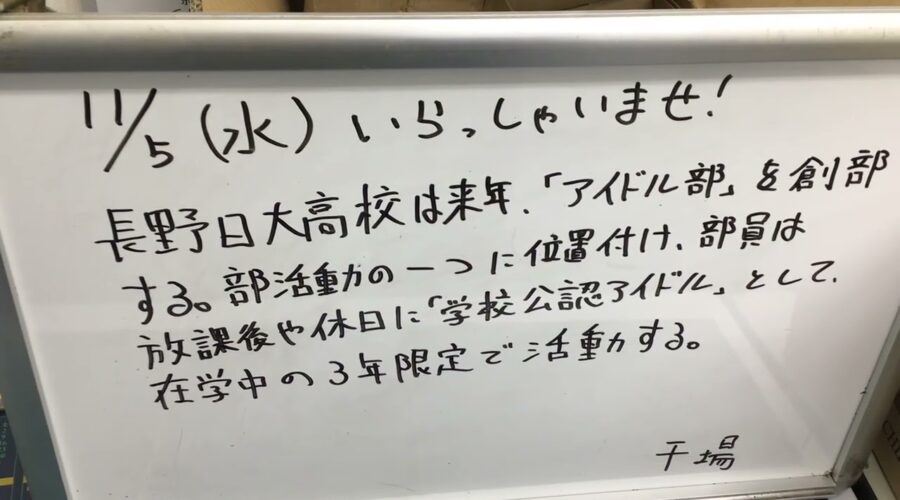 11/5(水) いらっしゃいませ!
長野日大高校は来年、「アイドル部」を創部
する。部活動の一つに位置付け、部員は
放課後や休日に「学校公認アイドル」として、
在学中の3年限定で活動する。
干場